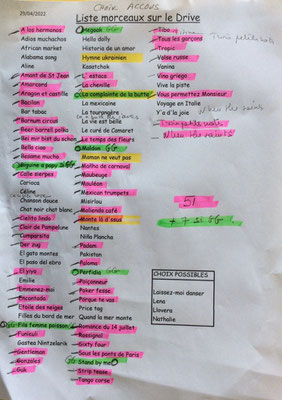 CHOIR ACCOUS
29/04/2022
Liste morceaux sur le Drive
A los hermanos
Adios muchachos
African market
Alabama song
Aline
Amant de St Jean
Amarcord
Aragon et castille
Bacilon
Bar tabac
Barnum circus
Beer barrel polka
Bei mir bist du schön
Bella ciao
Besame mucho
Béguine à papy GG
Calle sierpes
Carioca
Céline
Chanson douce
Chat noir chat blanc
Cielito lindo
Clair de Pampelune
Comparsita
Der zug
El gato montes
El paso del ebro
El yiyo
Emilie
Emmenez-moi
Encantado
Etoile des neiges
Filles du bord de mer
Fils femme poisson
Funiculi
Gastea Nintzelarik
Gentleman
Gonzales
Guk
Hegoak
Hello dolly
Historia de un amor
Hymne ukrainien
Kasatchok
L'estaca
La chenille
La complainte de la butte
La mexicaine
La tourangère
La vie est belle
Le curé de Camaret
Le temps des fleurs
Maldon GG
Malha de carnaval
Maman ne veut pas
Maubeuge
Mauléon
Mexican trumpets
Misirlou
Moliendo café
Monte là d'sus
Nantes
Niña Plancha
Padam
Pakistan
Paloma
Perfidia GG
Poiçonneur
Poker fesse
Porque te vas
Price tag
Quand la mer monte
Romance du 14 juillet
Rossignol
Sixty four
Sous les ponts de Paris
Stand by me
Strip tease
Tango corse
Tiba
Tous les garçons
Tropic
Valse russe
Vanina
Vino griego
Vive la piste
Vous permettez Monsieur
Voyage en Italie
Y'a d'la joie
51
+ 7 SI GG
CHOIX POSSIBLES
Laissez-moi danser
Lena
Llovera
Nathalie